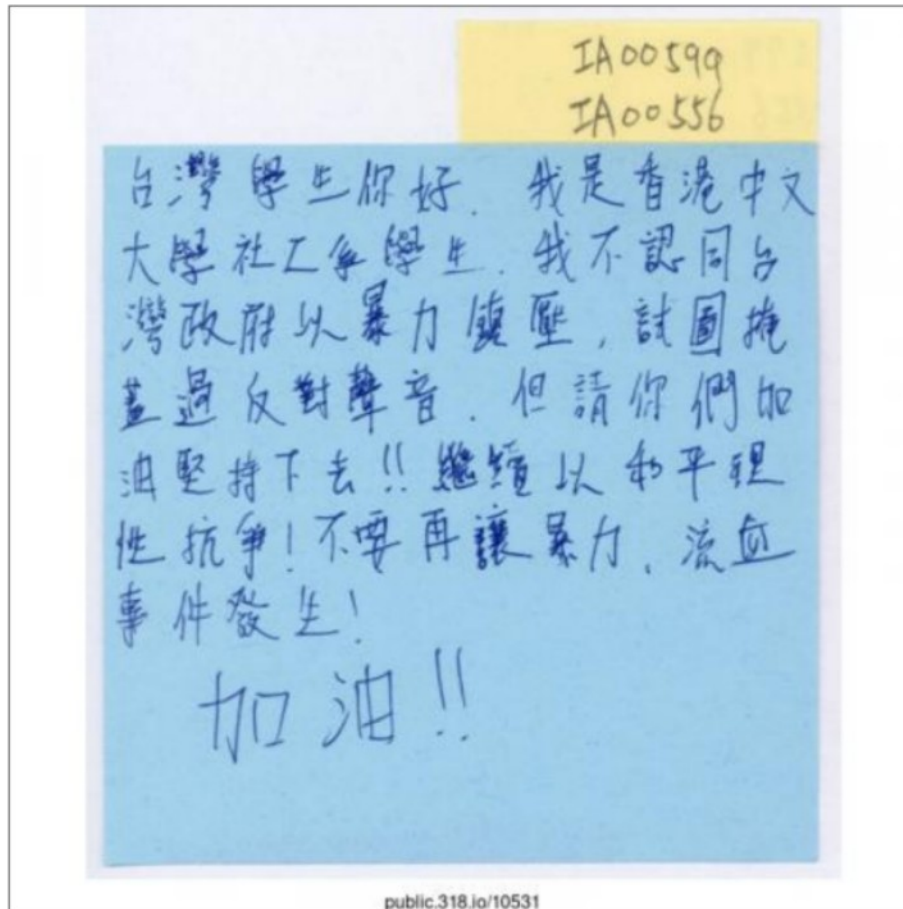 IA00599
IA00556
台灣學生你好. 我是香港中文
大學社工系學生. 我不認同台
灣政府以暴力鎮壓, 試圖掩
蓋過反對聲音. 但請你們加
油堅持下去!! 繼續以和平理
性抗爭! 不要再讓暴力、流血
事件發生!
加油!!
public.318.io/10531